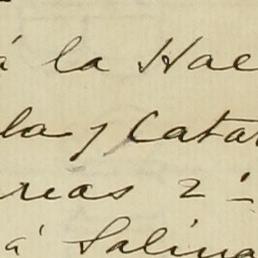 á la Hac
la y Catar
reas 2ª
á Salina